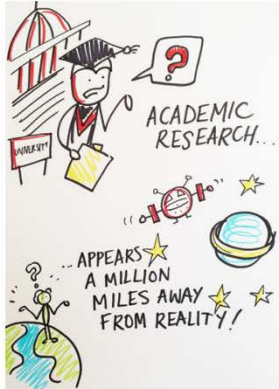 ?
UNIVERSITY
ACADEMIC
RESEARCH...
...APPEARS
A MILLION
MILES AWAY
FROM REALITY!
?